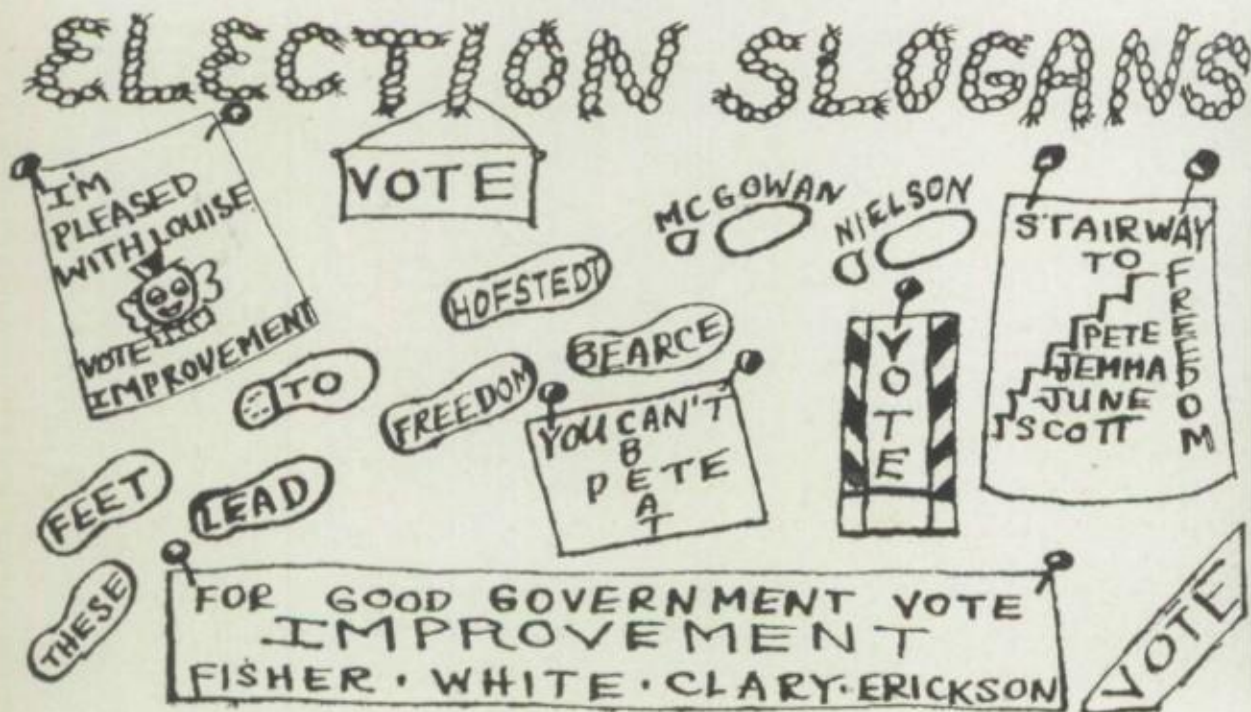 ELECTION SLOGANS
I'M
PLEASED
WITH LOUISE
VOTE
IMPROVEMENT
VOTE
THESE
FEET
LEAD
TO
FREEDOM
HOFSTEDT
BEARCE
MCGOWAN
NIELSON
YOU CAN'T
B
PETE
A
T
VOTE
STAIRWAY
TO
FREEDOM
PETE
JEMMA
JUNE
SCOTT
FOR GOOD GOVERNMENT VOTE
IMPROVEMENT
FISHER · WHITE · CLARY · ERICKSON
VOTE